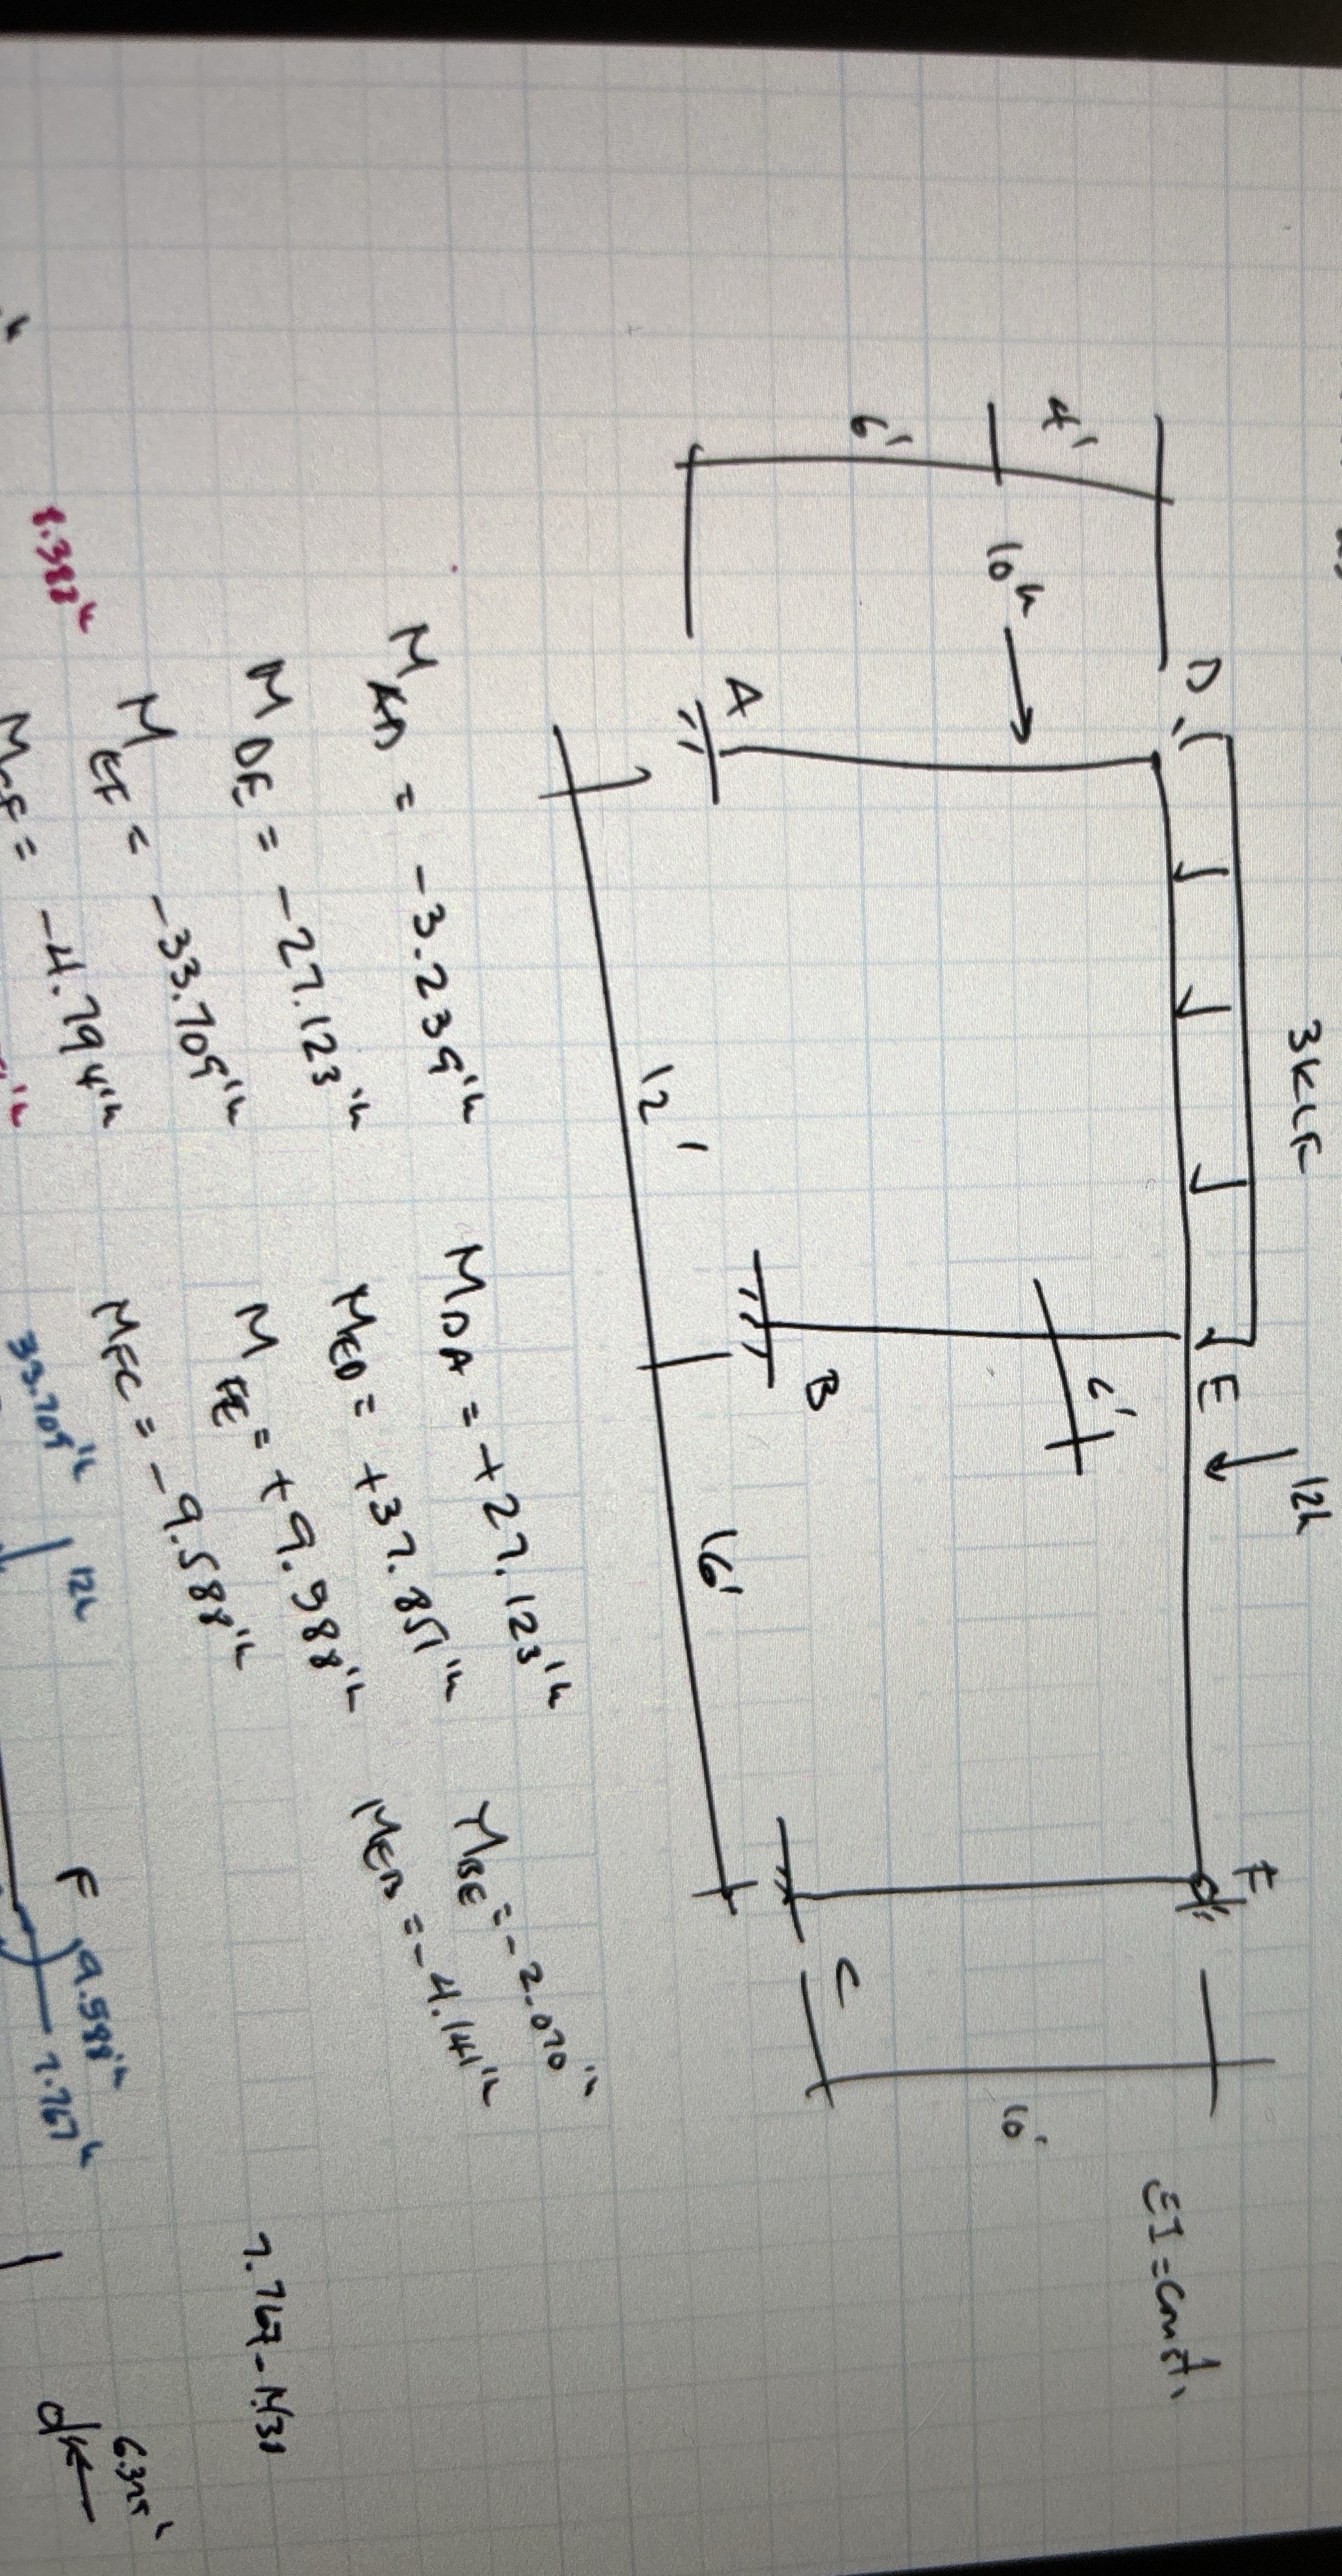 3KLF
12k
D
E
F
EI = const.
4'
10k
6'
6'
10'
A
B
C
12'
16'
M_AD = -3.239'k
M_DA = +27.123'k
M_BE = -2.070'k
M_DE = -27.123'k
M_ED = +37.851'k
M_EB = -4.141'k
M_EF = -33.709'k
M_FE = +9.988'k
M_CF = -4.794'k
M_FC = -9.588'k
8.382k
33.709'k
12k
F
9.588'k
7.767k
6.325k